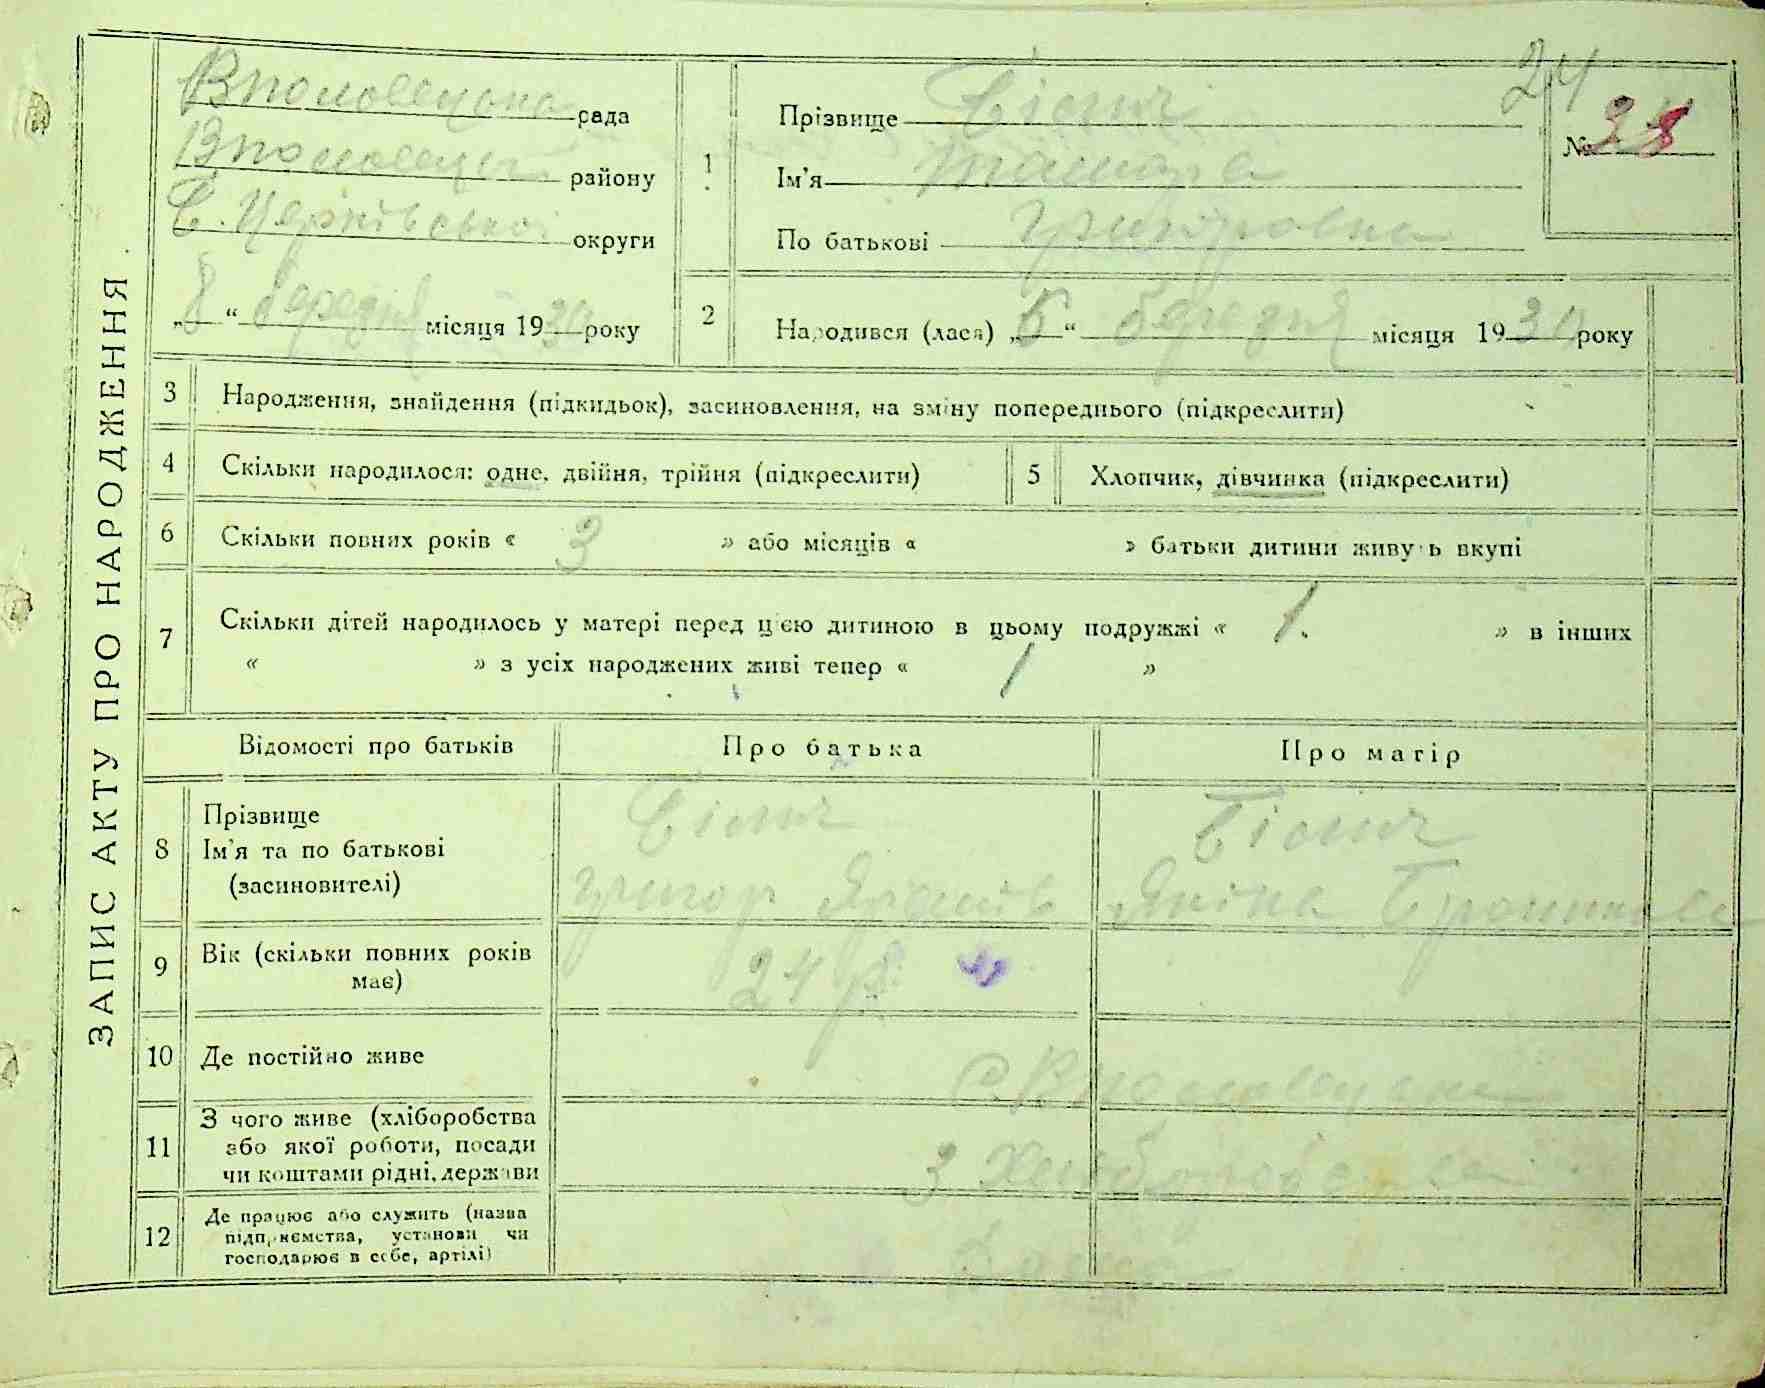 ЗАПИС АКТУ ПРО НАРОДЖЕННЯ.
рада
району
Б. Церківської округи
„8“ березня місяця 1930 року
24
№ 38
1
Прізвище Біліч
Ім'я Тамара
По батькові Григоровна
2
Народився (лася) „6“ березня місяця 1930 року
3 Народження, знайдення (підкидьок), засиновлення, на зміну попереднього (підкреслити)
4 Скільки народилося: одне, двійня, трійня (підкреслити)
5 Хлопчик, дівчинка (підкреслити)
6 Скільки повних років « 3 » або місяців « » батьки дитини живуть вкупі
7 Скільки дітей народилось у матері перед цією дитиною в цьому подружжі « 1. » в інших
« » з усіх народжених живі тепер « 1 »
Відомості про батьків
Про батька
Про матір
8
Прізвище
Ім'я та по батькові
(засиновителі)
Біліч
Григор
Біліч
9 Вік (скільки повних років
має)
24 р.
10 Де постійно живе
с.
11
З чого живе (хліборобства
або якої роботи, посади
чи коштами рідні, держави
З Хліборобства
12
Де працює або служить (назва
підприємства, установи чи
господарює в себе, артілі)